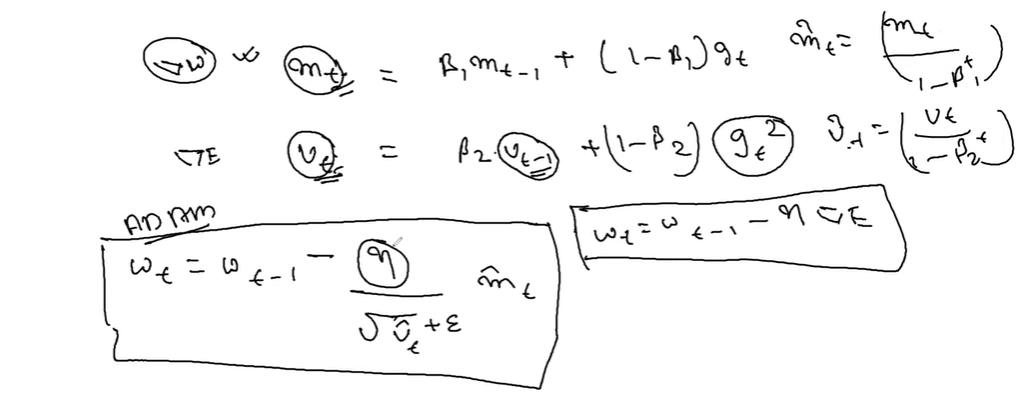 ∇w w m_t = β₁ m_{t-1} + (1-β₁) g_t m̂_t = (m_t / 1-β₁^t)
∇E v_t = β₂ · v_{t-1} + (1-β₂) g_t² v̂_t = (v_t / 1-β₂^t)
ADAM
w_t = w_{t-1} - η / √v̂_t + ε m̂_t
w_t = w_{t-1} - η ∇E